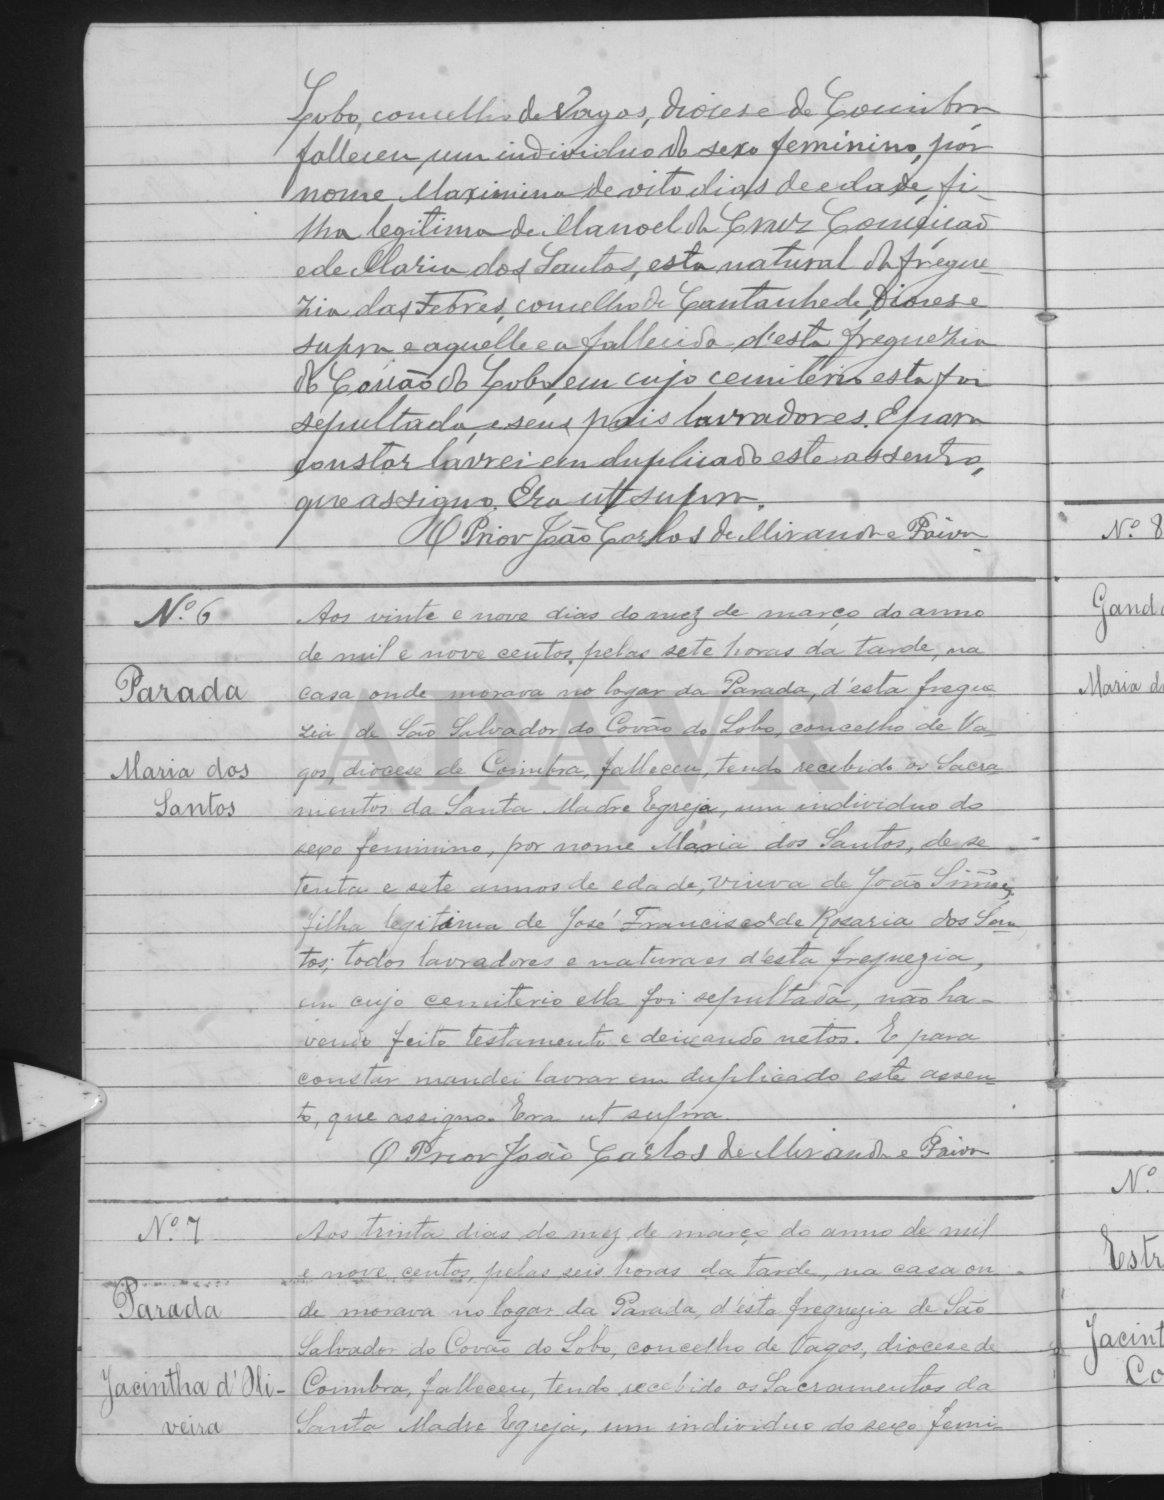 Lobo, concelho de Vagos, diocese de Coimbra
falleceu um individuo do sexo feminino, por
nome Maximina de oito dias de edade, fi
lha legitima de Manoel da Cruz Conceição
e de Maria dos Santos, esta natural da fregue-
zia das Febres, concelho de Cantanhede, Diocese
supra e aquelle e a fallecida d'esta freguezia
do Covão do Lobo, em cujo cemiterio esta foi
sepultada, e seus pais lavradores. E para
constar lavrei em duplicado este assento,
que assigno. Era ut supra.
O Prior João Carlos de Miranda e Paiva
Nº 6
Parada
Maria dos
Santos
Aos vinte e nove dias do mez de março do anno
de mil e nove centos, pelas sete horas da tarde, na
casa onde morava no logar da Parada, d'esta fregue
zia de São Salvador do Covão do Lobo, concelho de Va-
gos, diocese de Coimbra, falleceu, tendo recebido os Sacra
mentos da Santa Madre Egreja, um individuo do
sexo feminino, por nome Maria dos Santos, de se
tenta e sete annos de edade, viuva de João Simões,
filha legitima de José Francisco e de Rosaria dos San
tos; todos lavradores e naturaes d'esta freguezia,
em cujo cemiterio ella foi sepultada, não ha-
vendo feito testamento e deixando netos. E para
constar mandei lavrar em duplicado este assen-
to, que assigno. Era ut supra
O Prior João Carlos de Miranda e Paiva
Nº 7
Parada
Jacintha d'Oli-
veira
Aos trinta dias do mez de março do anno de mil
e nove centos, pelas seis horas da tarde, na casa on
de morava no logar da Parada, d'esta freguezia de São
Salvador do Covão do Lobo, concelho de Vagos, diocese de
Coimbra, falleceu, tendo recebido os Sacramentos da
Santa Madre Egreja, um individuo do sexo femi-
Nº 8
Gand
Maria d
Nº
Estr
Jacint
Co
ADAVR